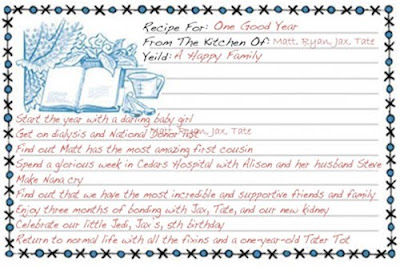 Recipe For: One Good Year
From The Kitchen Of: Matt, Ryan, Jax, Tate
Yeild: A Happy Family
Start the year with a darling baby girl
Get on dialysis and National Donor list
Matt, Ryan, Jax, Tate
Find out Matt has the most amazing first cousin
Spend a glorious week in Cedars Hospital with Alison and her husband Steve
Make Nana cry
Find out that we have the most incredible and supportive friends and family
Enjoy three months of bonding with Jax, Tate, and our new kidney
Celebrate our little Jedi, Jax's, 5th birthday
Return to normal life with all the fixins and a one-year-old Tater Tot